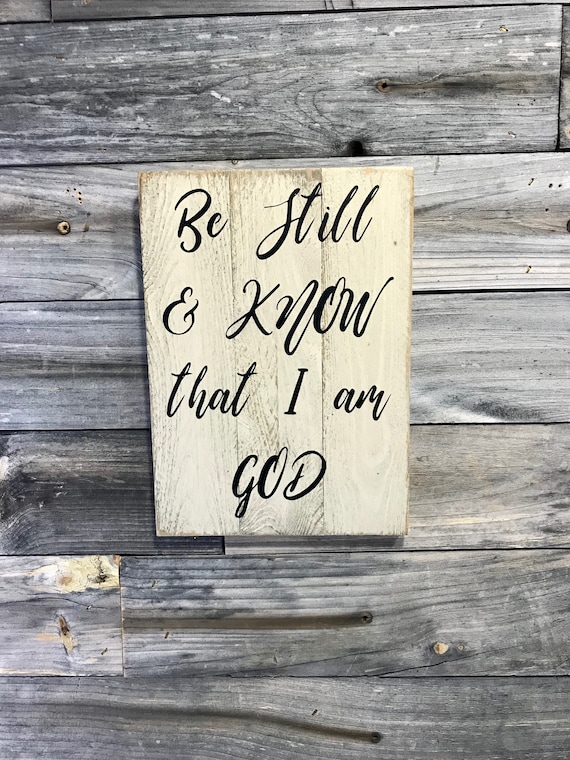 Be Still
& KNOW
that I am
GOD